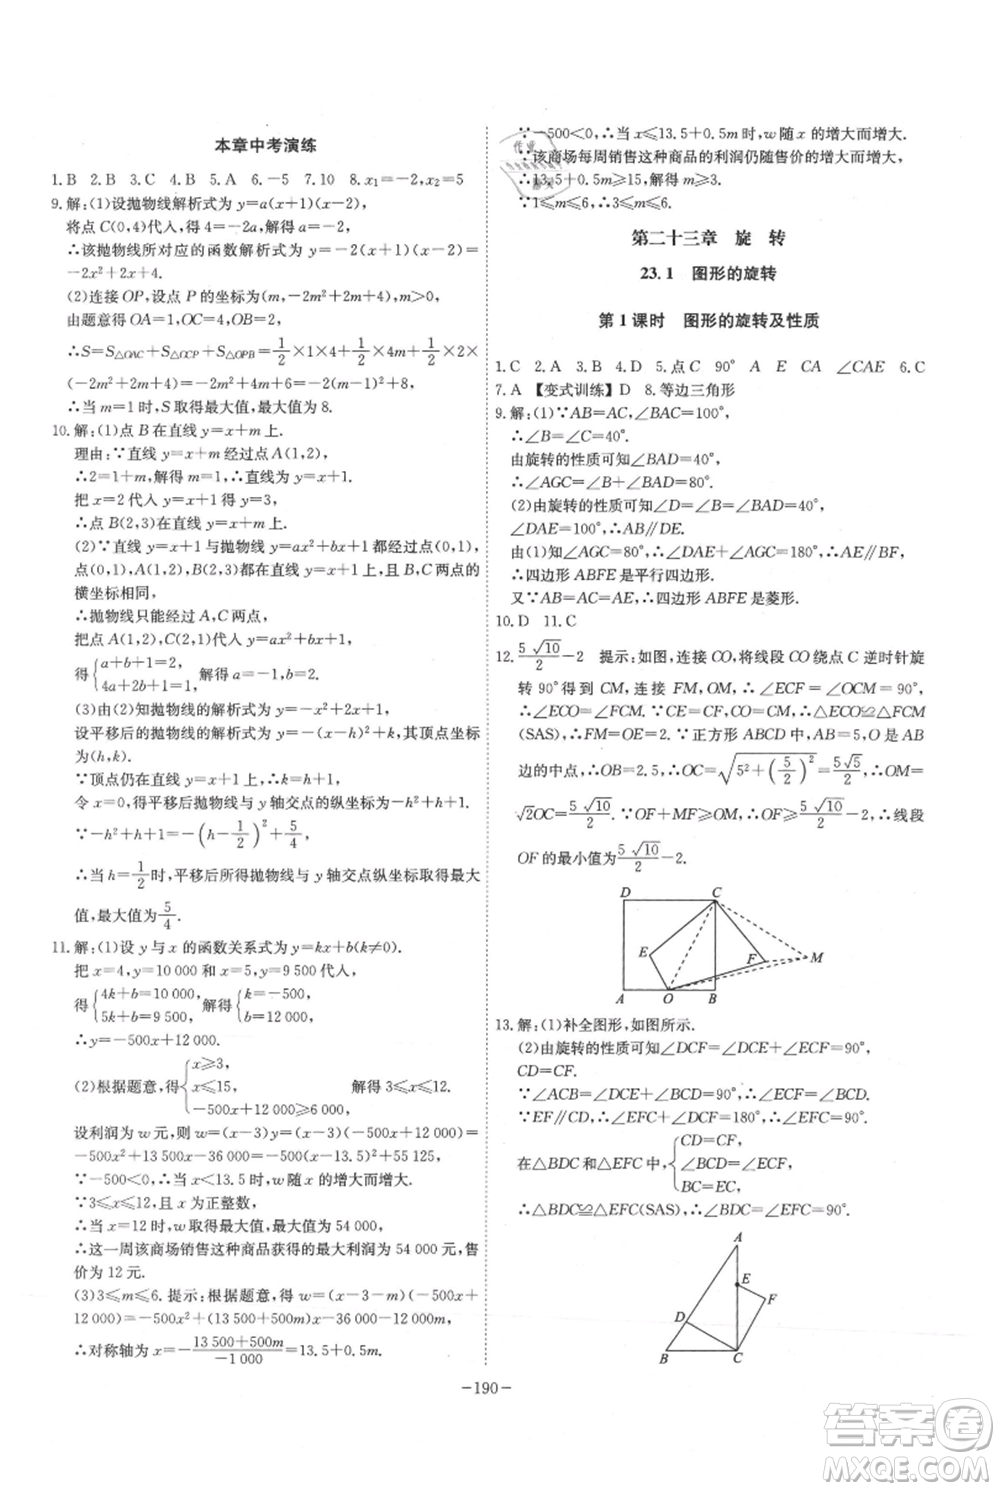 本章中考演练
1. B 2. B 3. C 4. B 5. A 6. -5 7. 10 8. x₁=-2, x₂=5
9. 解:(1)设抛物线解析式为 y=a(x+1)(x-2),
将点 C(0,4)代入,得 4=-2a,解得 a=-2,
∴该抛物线所对应的函数解析式为 y=-2(x+1)(x-2)=
-2x²+2x+4.
(2)连接 OP,设点 P 的坐标为(m,-2m²+2m+4),m>0.
由题意得 OA=1,OC=4,OB=2,
∴S=S△OAC+S△OCP+S△OPB=1/2×1×4+1/2×4m+1/2×2×
(-2m²+2m+4)=-2m²+4m+6=-2(m-1)²+8,
∴当 m=1 时,S 取得最大值,最大值为 8.
10. 解:(1)点 B 在直线 y=x+m 上.
理由:∵直线 y=x+m 经过点 A(1,2),
∴2=1+m,解得 m=1,∴直线为 y=x+1.
把 x=2 代入 y=x+1 得 y=3,
∴点 B(2,3)在直线 y=x+m 上.
(2)∵直线 y=x+1 与抛物线 y=ax²+bx+1 都经过点(0,1),
点(0,1),A(1,2),B(2,3)在直线 y=x+1 上,且 B,C 两点的
横坐标相同,
∴抛物线只能经过 A,C 两点,
把点 A(1,2),C(2,1)代入 y=ax²+bx+1,
得{a+b+1=2, 4a+2b+1=1, 解得 a=-1,b=2.
(3)由(2)知抛物线的解析式为 y=-x²+2x+1,
设平移后的抛物线的解析式为 y=-(x-h)²+k,其顶点坐标为
(h,k).
∵顶点仍在直线 y=x+1 上,∴k=h+1.
令 x=0,得平移后抛物线与 y 轴交点的纵坐标为-h²+h+1.
∵-h²+h+1=-(h-1/2)²+5/4,
∴当 h=1/2时,平移后所得抛物线与 y 轴交点纵坐标取得最大
值,最大值为5/4.
11. 解:(1)设 y 与 x 的函数关系式为 y=kx+b(k≠0).
把 x=4,y=10 000 和 x=5,y=9 500 代入,
得{4k+b=10 000, 5k+b=9 500, 解得{k=-500, b=12 000.
∴y=-500x+12 000.
(2)根据题意,得{x≥3, x≤15, -500x+12 000≥6 000, 解得 3≤x≤12.
设利润为 w 元,则 w=(x-3)y=(x-3)(-500x+12 000)=
-500x²+13 500x-36 000=-500(x-13.5)²+55 125,
∵-500<0,∴当 x<13.5 时,w 随 x 的增大而增大.
∵3≤x≤12,且 x 为正整数,
∴当 x=12 时,w 取得最大值,最大值为 54 000,
∴这一周该商场销售这种商品获得的最大利润为 54 000 元,售
价为 12 元.
(3)3≤m≤6. 提示:根据题意,得 w=(x-3-m)(-500x+
12 000)=-500x²+(13 500+500m)x-36 000-12 000m,
∴对称轴为 x=-(13 500+500m)/(-1 000)=13.5+0.5m.
∵-500<0,∴当 x≤13.5+0.5m 时,w 随 x 的增大而增大.
∵该商场每周销售这种商品的利润仍随售价的增大而增大,
∴13.5+0.5m≥15,解得 m≥3.
∵1≤m≤6,∴3≤m≤6.
第二十三章 旋 转
23.1 图形的旋转
第 1 课时 图形的旋转及性质
1. C 2. A 3. B 4. D 5. 点 C 90° A EA CA ∠CAE 6. C
7. A 【变式训练】D 8. 等边三角形
9. 解:(1)∵AB=AC,∠BAC=100°,
∴∠B=∠C=40°.
由旋转的性质可知∠BAD=40°,
∴∠AGC=∠B+∠BAD=80°.
(2)由旋转的性质可知∠D=∠B=∠BAD=40°,
∠DAE=100°,∴AB∥DE.
由(1)知∠AGC=80°,∴∠DAE+∠AGC=180°,∴AE∥BF,
∴四边形 ABFE 是平行四边形.
又∵AB=AC=AE,∴四边形 ABFE 是菱形.
10. D 11. C
12. 5√10/2-2 提示:如图,连接 CO,将线段 CO 绕点 C 逆时针旋
转 90°得到 CM,连接 FM,OM,∴∠ECF=∠OCM=90°,
∴∠ECO=∠FCM. ∵CE=CF,CO=CM,∴△ECO≌△FCM
(SAS),∴FM=OE=2. ∵正方形 ABCD 中,AB=5,O 是 AB
边的中点,∴OB=2.5,∴OC=√(5²+(5/2)²)=5√5/2,∴OM=
√2OC=5√10/2. ∵OF+MF≥OM,∴OF≥5√10/2-2,∴线段
OF 的最小值为5√10/2-2.
D C E F M A O B
13. 解:(1)补全图形,如图所示.
(2)由旋转的性质可知∠DCF=∠DCE+∠ECF=90°,
CD=CF.
∵∠ACB=∠DCE+∠BCD=90°,∴∠ECF=∠BCD.
∵EF∥CD,∴∠EFC+∠DCF=180°,∴∠EFC=90°.
在△BDC 和△EFC 中,{CD=CF, ∠BCD=∠ECF, BC=EC,
∴△BDC≌△EFC(SAS),∴∠BDC=∠EFC=90°.
A E F D B C
-190-
答案卷
MXQE.COM